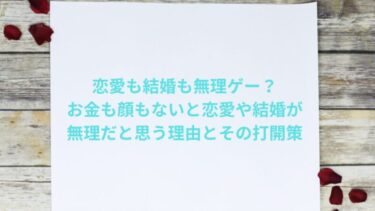 恋愛も結婚も無理ゲー？
お金も顔もないと恋愛や結婚が
無理だと思う理由とその打開策